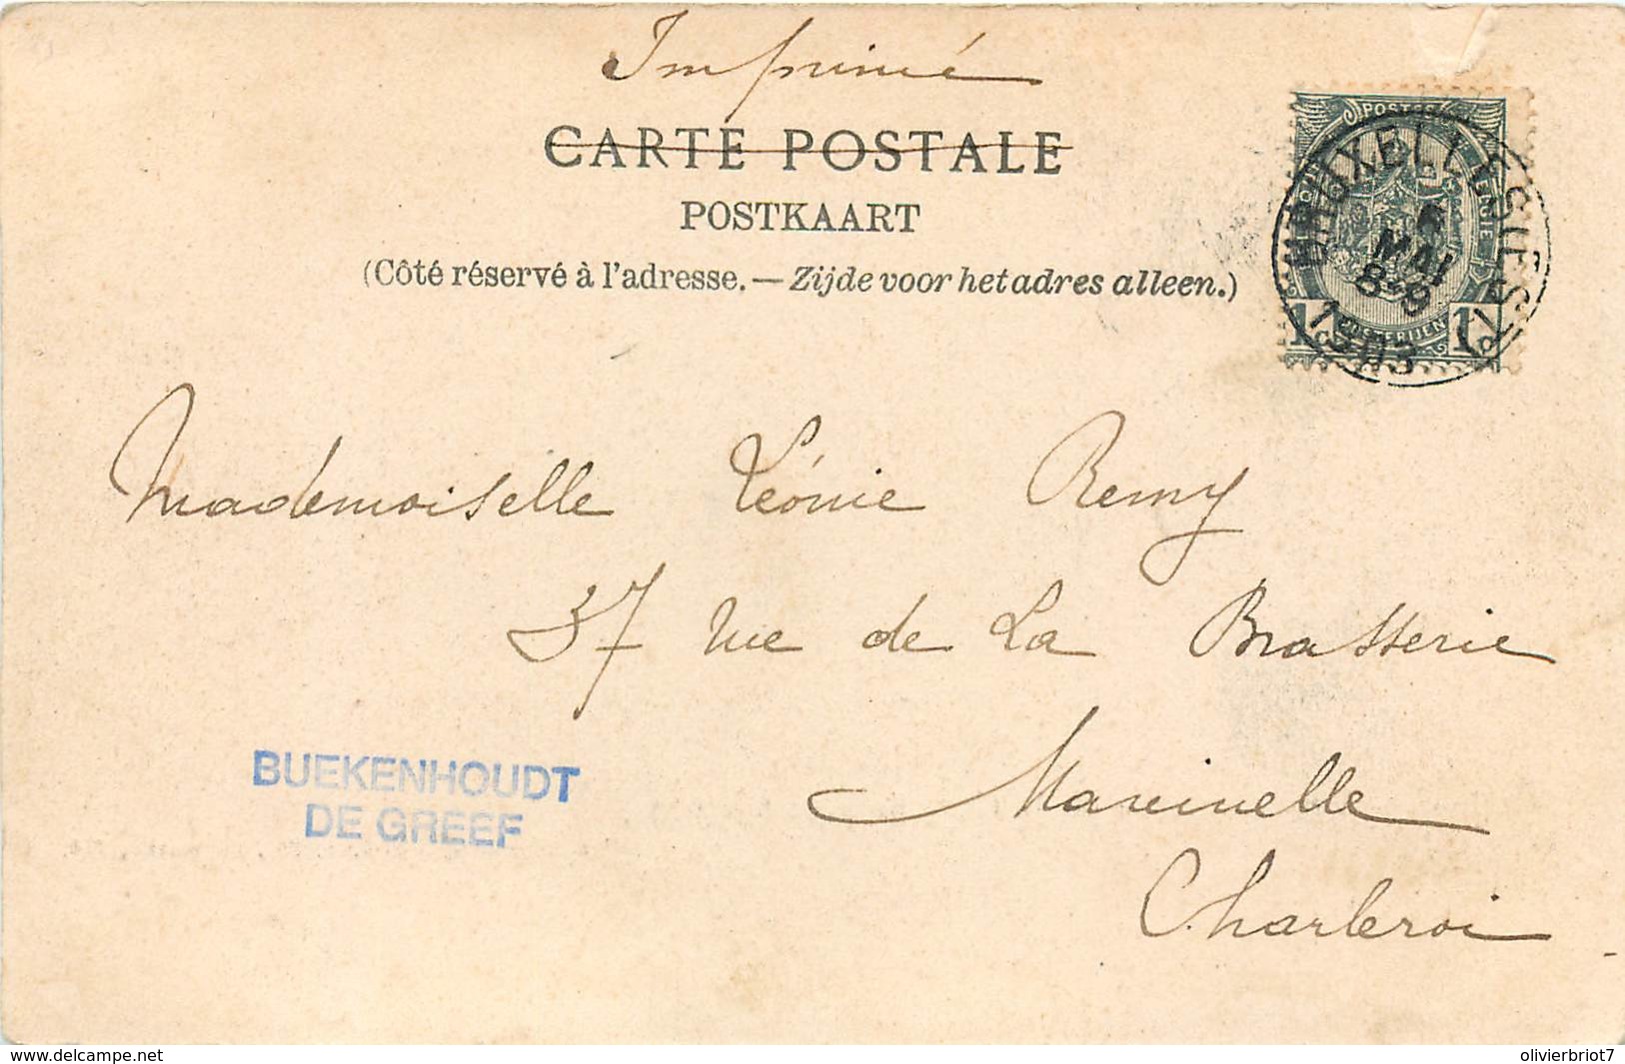 Imprimé
CARTE POSTALE
POSTKAART
(Côté réservé à l'adresse. — Zijde voor het adres alleen.)
POSTES
1 POSTERIJEN 1
BRUXELLES
MAI
8-9
1903
Mademoiselle Léonie Remy
37 rue de La Brasserie
Marcinelle
Charleroi
BUEKENHOUDT
DE GREEF
www.delcampe.net
olivierbriot7